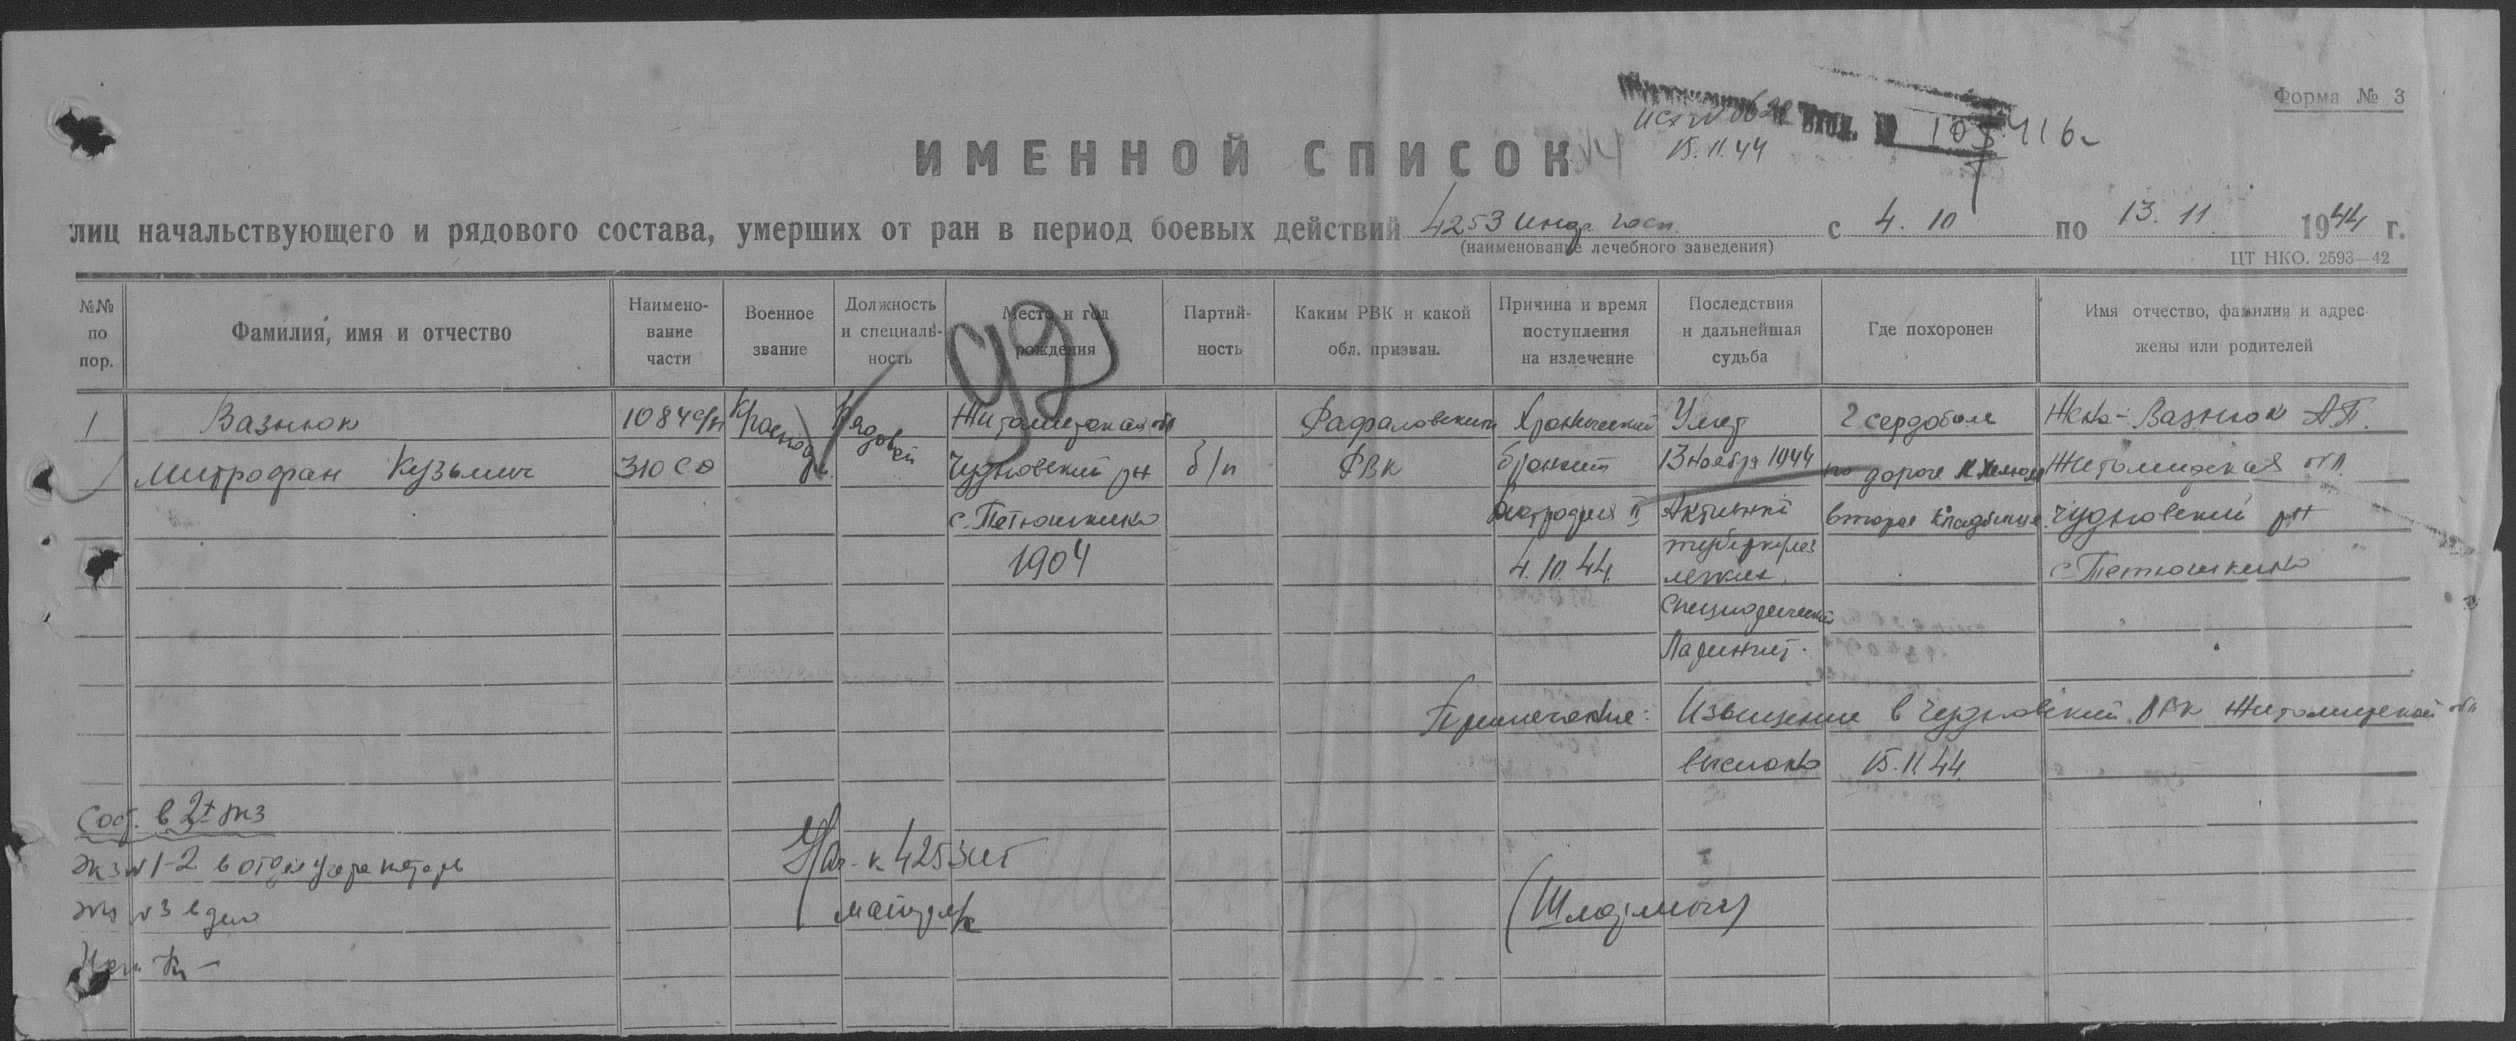 Форма № 3
исх № 0622
Вход. № 107416с
15.11.44
ИМЕННОЙ СПИСОК
лиц начальствующего и рядового состава, умерших от ран в период боевых действий 4253 инф. госп. с 4.10 по 13.11. 1944 г.
(наименование лечебного заведения)
ЦТ НКО. 2593—42
№№ по пор.
Фамилия, имя и отчество
Наименование части
Военное звание
Должность и специальность
Место и год рождения
Партийность
Каким РВК и какой обл. призван.
Причина и время поступления на излечение
Последствия и дальнейшая судьба
Где похоронен
Имя отчество, фамилия и адрес жены или родителей
92
1
Вазнюк
Митрофан Кузьмич
1084 с/п
310 сд
Рядовой
Житомирская обл
Чудновский рн
с. Петюшкино
1904
б/п
РВК
Хронический
бронхит
Дистрофия II
4.10.44.
Умер
13 ноября 1944
Активный
туберкулез
легких.
Специфический
Ларингит.
г Сердоболь
по дороге к
второе кладбище
Жена - Вазнюк А.П.
Житомирская обл.
Чудновский рн
с. Петюшкино
Примечание: Извещение в Чудновский РВК Житомирской обл
выслано 15.11.44
Сост. в 2х экз
экз № 1-2 в отдел учета потерь
экз № 3 в дело
Нач-к 4253 иг
майор м/с